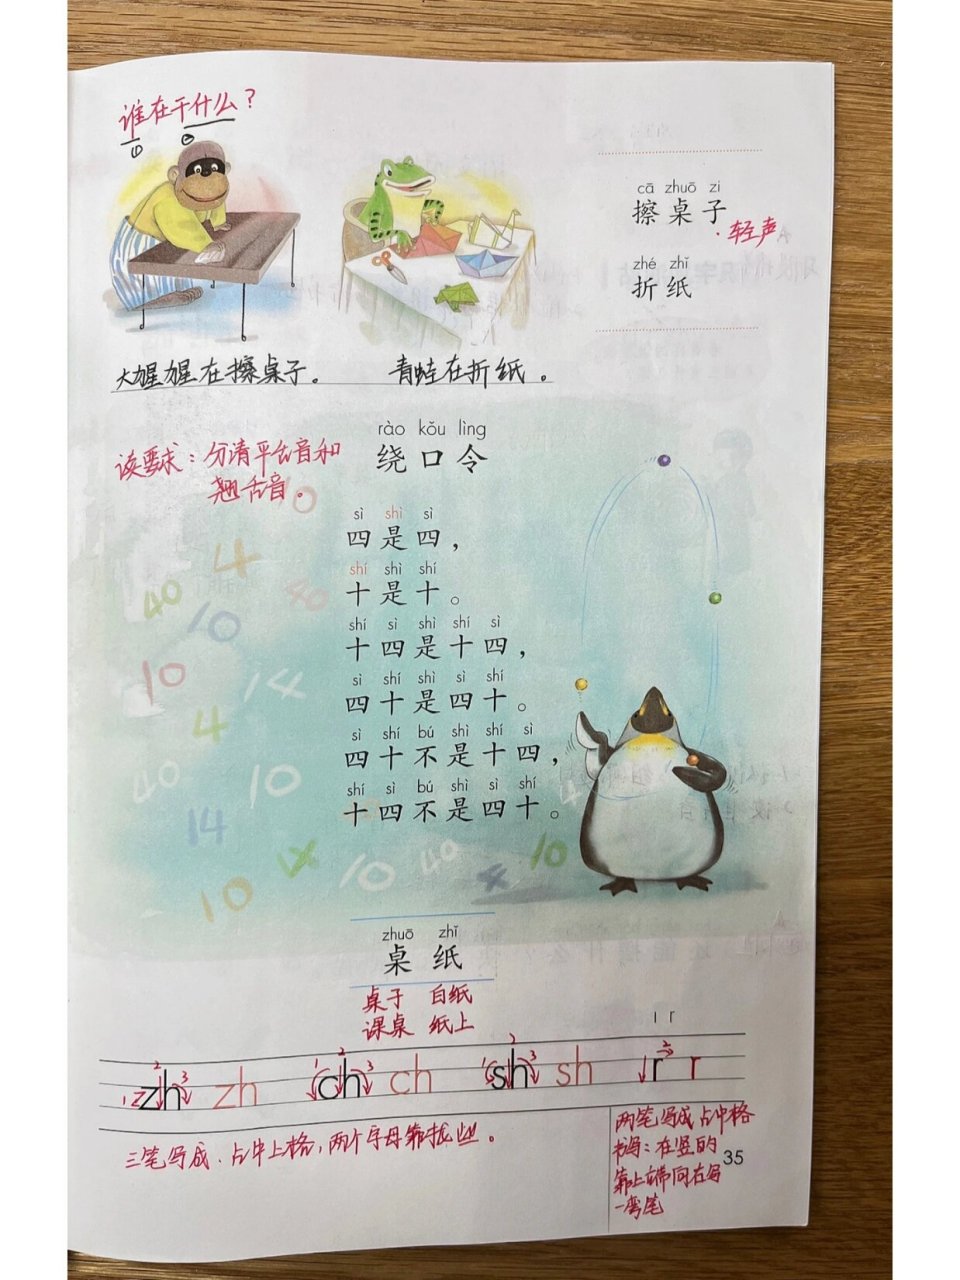 谁在干什么？
① ②
cā zhuō zi
擦桌子
·轻声
zhé zhǐ
折纸
大猩猩在擦桌子。 青蛙在折纸。
rào kǒu lìng
绕口令
读要求：分清平舌音和
翘舌音。
sì shì sì
四是四，
shí shì shí
十是十。
shí sì shì shí sì
十四是十四，
sì shí shì sì shí
四十是四十。
sì shí bú shì shí sì
四十不是十四，
shí sì bú shì sì shí
十四不是四十。
10
4
40
40
10
10
14
4
40
10
14
14
10
40
10
4
10
zhuō zhǐ
桌 纸
桌子 白纸
课桌 纸上
zh zh ch ch sh sh r r
三笔写成，占中上格，两个字母靠拢些。
两笔写成占中格
书写：在竖的
靠上部向右写
一弯笔
35